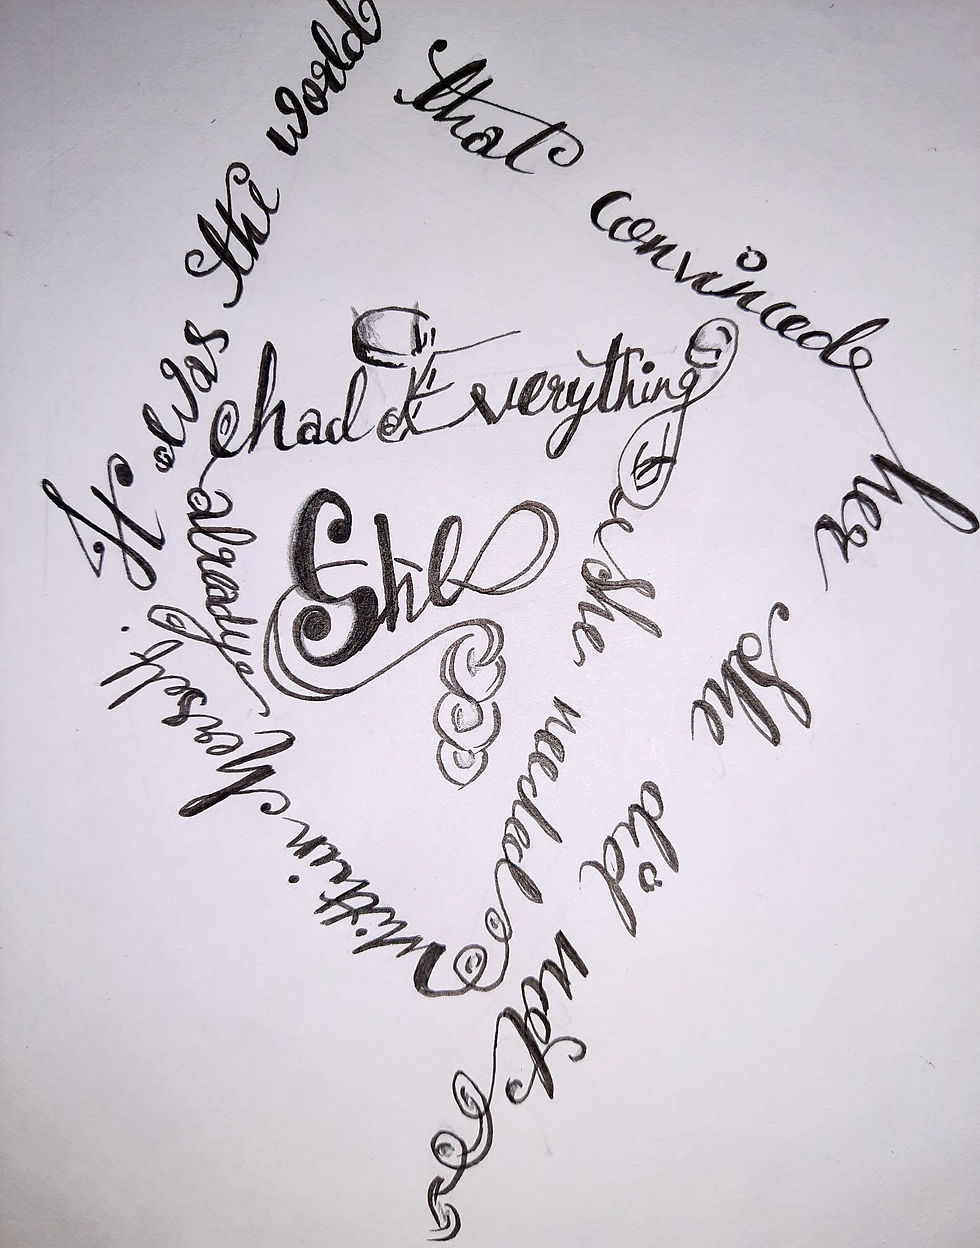 She
already
had Everything
she needed
within
herself.
It was the world
that convinced
her
she did not